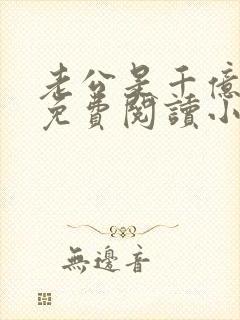 老公是千億
免費閱讀小
無邊音